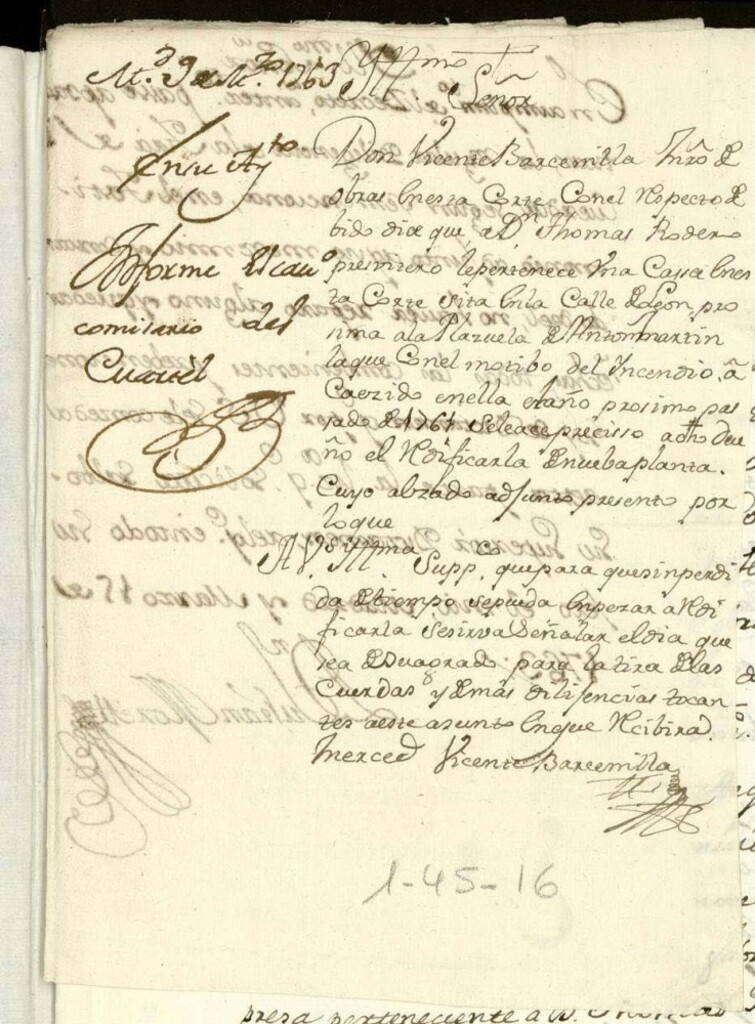 M.d 9 de M.zo 1763
Yllmo
Señor
En su Ay.to
Ynforme El cavo
comisario del
Cuartel
Don Vicente Barcenilla Mro d
obras en esta Corte Con el Respecto de
bido dice que, a Dn Thomas Rodero
presvitero le pertenece Una Cassa en es
ta Corte sita en la Calle del Leon, pro
sima a la Plazuela de Anton martin
la que Con el motibo del Incendio, a
Caezido en ella el año prosimo pas
sado de 1761 se le ace precisso a dho due
ño el Rdificarla de nueba planta.
Cuyo alzado adjunto presento por
lo que
A V. S. Yllma Suppco que para que sin perdi
da de tiempo se pueda enpezar a Rdi
ficarla se sirva Señalar el dia que
sea de su agrado para la tira de las
Cuerdas y demas dilijencias tocan
tes a este asunto en que Recibira
merced Vicente Barcenilla
1-45-16
presa perteneciente a D. Thomas